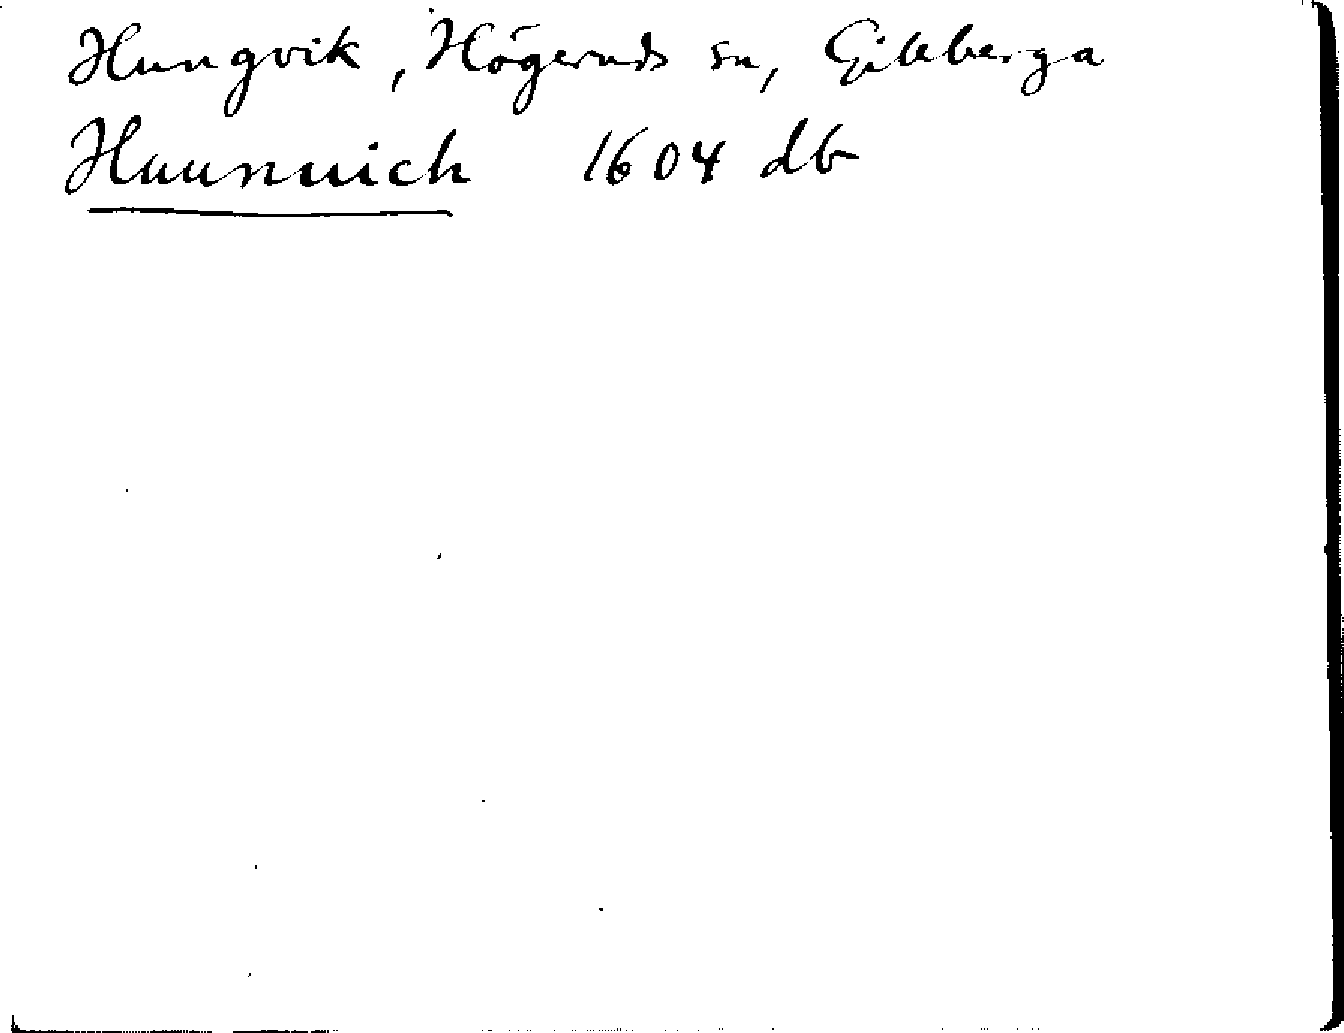 Hungvik, Högeruds sn, Gillberga
Haunuich 1604 db